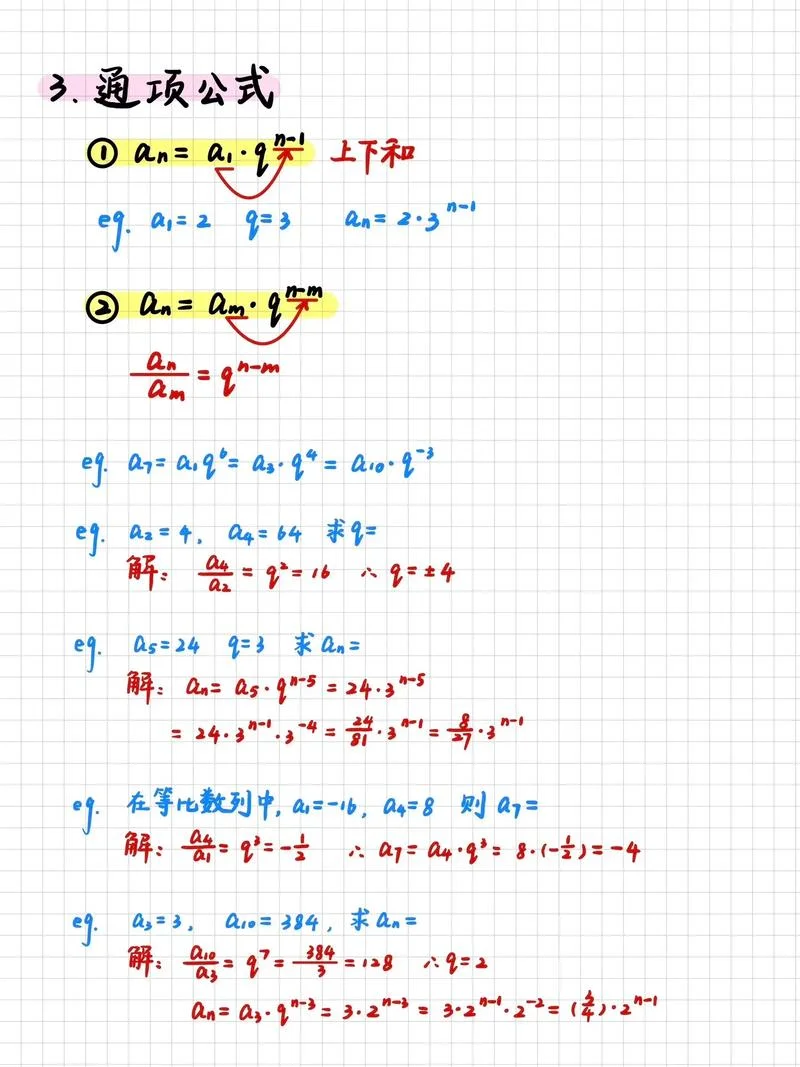 3. 通项公式
① aₙ = a₁·qⁿ⁻¹ 上下和
eg. a₁=2 q=3 aₙ=2·3ⁿ⁻¹
② aₙ = aₘ·qⁿ⁻ᵐ
aₙ/aₘ = qⁿ⁻ᵐ
eg. a₇=a₁q⁶=a₃·q⁴=a₁₀·q⁻³
eg. a₂=4, a₄=64 求q=
解: a₄/a₂=q²=16 ∴q=±4
eg. a₅=24 q=3 求aₙ=
解: aₙ=a₅·qⁿ⁻⁵=24·3ⁿ⁻⁵
=24·3ⁿ⁻¹·3⁻⁴=24/81·3ⁿ⁻¹=8/27·3ⁿ⁻¹
eg. 在等比数列中, a₁=-16, a₄=8 则a₇=
解: a₄/a₁=q³=-1/2 ∴a₇=a₄·q³=8·(-1/2)=-4
eg. a₃=3, a₁₀=384, 求aₙ=
解: a₁₀/a₃=q⁷=384/3=128 ∴q=2
aₙ=a₃·qⁿ⁻³=3·2ⁿ⁻³=3·2ⁿ⁻¹·2⁻²=(3/4)·2ⁿ⁻¹